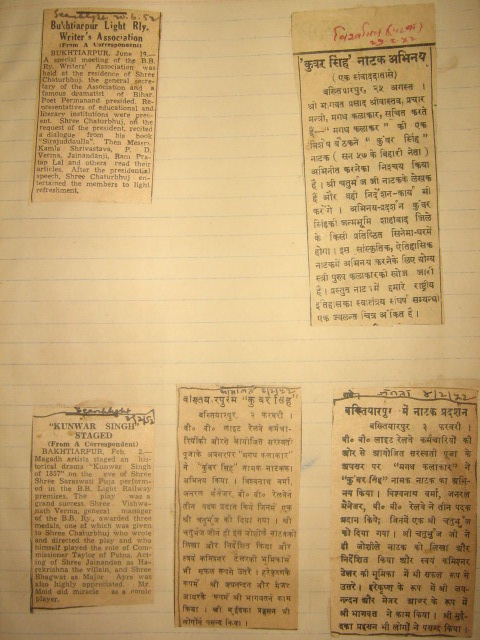 Searchlight 20.6.52
Bukhtiarpur Light Rly.
Writer's Association
(From A Correspondent)
BUKHTIARPUR, June 19.—
A special meeting of the B.B.
Ry. Writers' Association was
held at the residence of Shree
Chaturbhuj, the general secre-
tary of the Association and a
famous dramatist of Bihar.
Poet Permanand presided. Re-
presentatives of educational and
literary institutions were pre-
sent. Shree Chaturbhuj, on the
request of the president, recited
a dialogue from his book
"Sirajuddaulla". Then Messrs.
Kamla Shrivastava, P. D.
Verma, Jainandanji, Ram Pra-
tap Lal and others read their
articles. After the presidential
speech, Shree Chaturbhuj en-
tertained the members to light
refreshment.
'कुंवर सिंह' नाटक अभिनय
(एक संवाददातासे)
बख्तियारपुर, २५ अगस्त ।
श्री भागवत प्रसाद श्रीवास्तव, प्रचार
मन्त्री, मगध कलाकार, सूचित करते
हैं—" मगध कलाकार " की एक
विशेष बैठकने " कुँवर सिंह "
नाटक ( सन ५७ के बिहारी नेता )
अभिनीत करनेका निश्चय किया
है । श्री चतुर्भुज जी नाटकके लेखक
हैं और वही निर्देशन-कार्य भी
करेंगे । अभिनय-प्रदर्शन कुँवर
सिंहकी जन्मभूमि शाहाबाद जिले
के किसी प्रतिष्ठित सिनेमा-घरमें
होगा । इस सांस्कृतिक, ऐतिहासिक
नाटकमें अभिनय करनेके लिए योग्य
स्त्री पुरुष कलाकारकी खोज जारी
है । प्रस्तुत नाटकमें हमारे राष्ट्रीय
इतिहासका स्वातंत्र्य संघर्ष सम्बन्धी
एक ज्वलन्त चित्र अंकित है ।
Searchlight
"KUNWAR SINGH"
STAGED
(From A Correspondent)
BAKHTIARPUR, Feb. 2.—
Magadh artists staged an his-
torical drama "Kunwar Singh
of 1857" on the eve of Shree
Shree Saraswati Puja perform-
ed in the B.B. Light Railway
premises. The play was a
grand success. Shree Vishwa-
nath Verma, general manager
of the B.B. Ry., awarded three
medals, one of which was given
to Shree Chaturbhuj who wrote
and directed the play and who
himself played the role of Com-
missioner Taylor of Patna. Act-
ing of Shree Jainandan as Ha-
rekrishna the villain, and Shree
Bhagwat as Major Ayre was
also highly appreciated. Mr.
Moid did miracle as a comic
player.
बख्तियारपुरमें "कुंवर सिंह"
बख्तियारपुर, २ फरवरी ।
बी० बी० लाइट रेलवे कर्मचा-
रियोंकी ओरसे आयोजित सरस्वती
पूजाके अवसरपर "मगध कलाकार"
ने "कुँवर सिंह" नामक नाटकका
अभिनय किया । विश्वनाथ वर्मा,
जनरल मैनेजर, बी० बी० रेलवेने
तीन पदक प्रदान किये जिनमें एक
श्री चतुर्भुज को दिया गया । श्री
चतुर्भुज जीने ही इस जोशीले नाटकको
लिखा और निर्देशित किया और
स्वयं कमिश्नर टेलरकी भूमिकामें
भी सफल रूपसे उतरे । हरेकृष्णके
रूपमें श्री जयनन्दन और मेजर
आयरके रूपमें श्री भागवतने काम
किया । श्री मुईदका प्रहसन भी
लोगोंने पसन्द किया ।
४/२/५२
बख्तियारपुर में नाटक प्रदर्शन
बख्तियारपुर ३ फरवरी ।
बी० बी० लाइट रेलवे कर्मचारियों की
ओर से आयोजित सरस्वती पूजा के
अवसर पर "मगध कलाकार" ने
"कुँवर सिंह" नाटक का अभि-
नय किया । विश्वनाथ वर्मा, जनरल
मैनेजर, बी० बी० रेलवे ने तीन पदक
प्रदान किये; जिनमें एक श्री चतुर्भुज
को दिया गया । श्री चतुर्भुज जी ने
ही जोशीले नाटक को लिखा और
निर्देशित किया और स्वयं कमिश्नर
टेलर की भूमिका में भी सफल रूप से
उतरे । हरेकृष्ण के रूप में श्री जय-
नन्दन और मेजर आयर के रूप में
श्री भागवत ने काम किया । श्री मुई-
दका प्रहसन भी लोगों ने पसन्द किया ।